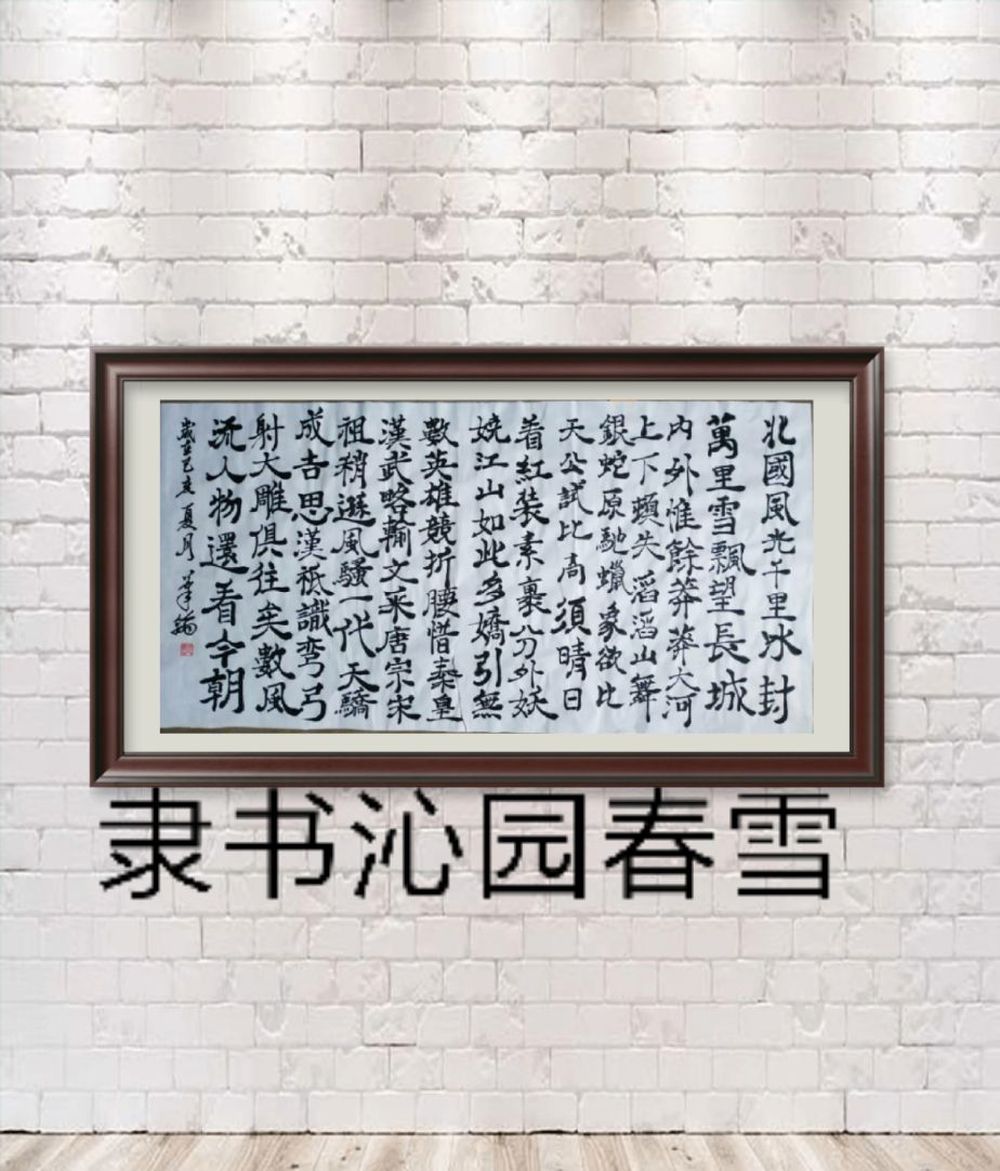 北國風光千里冰封
萬里雪飄望長城
内外惟餘莽莽大河
上下頓失滔滔山舞
銀蛇原馳蠟象欲比
天公試比高須晴日
看紅装素裹分外妖
嬈江山如此多嬌引無
數英雄競折腰惜秦皇
漢武略輸文采唐宗宋
祖稍遜風騷一代天驕
成吉思漢祗識弯弓
射大雕俱往矣數風
流人物還看今朝
歲在己亥夏月
隶书沁园春雪